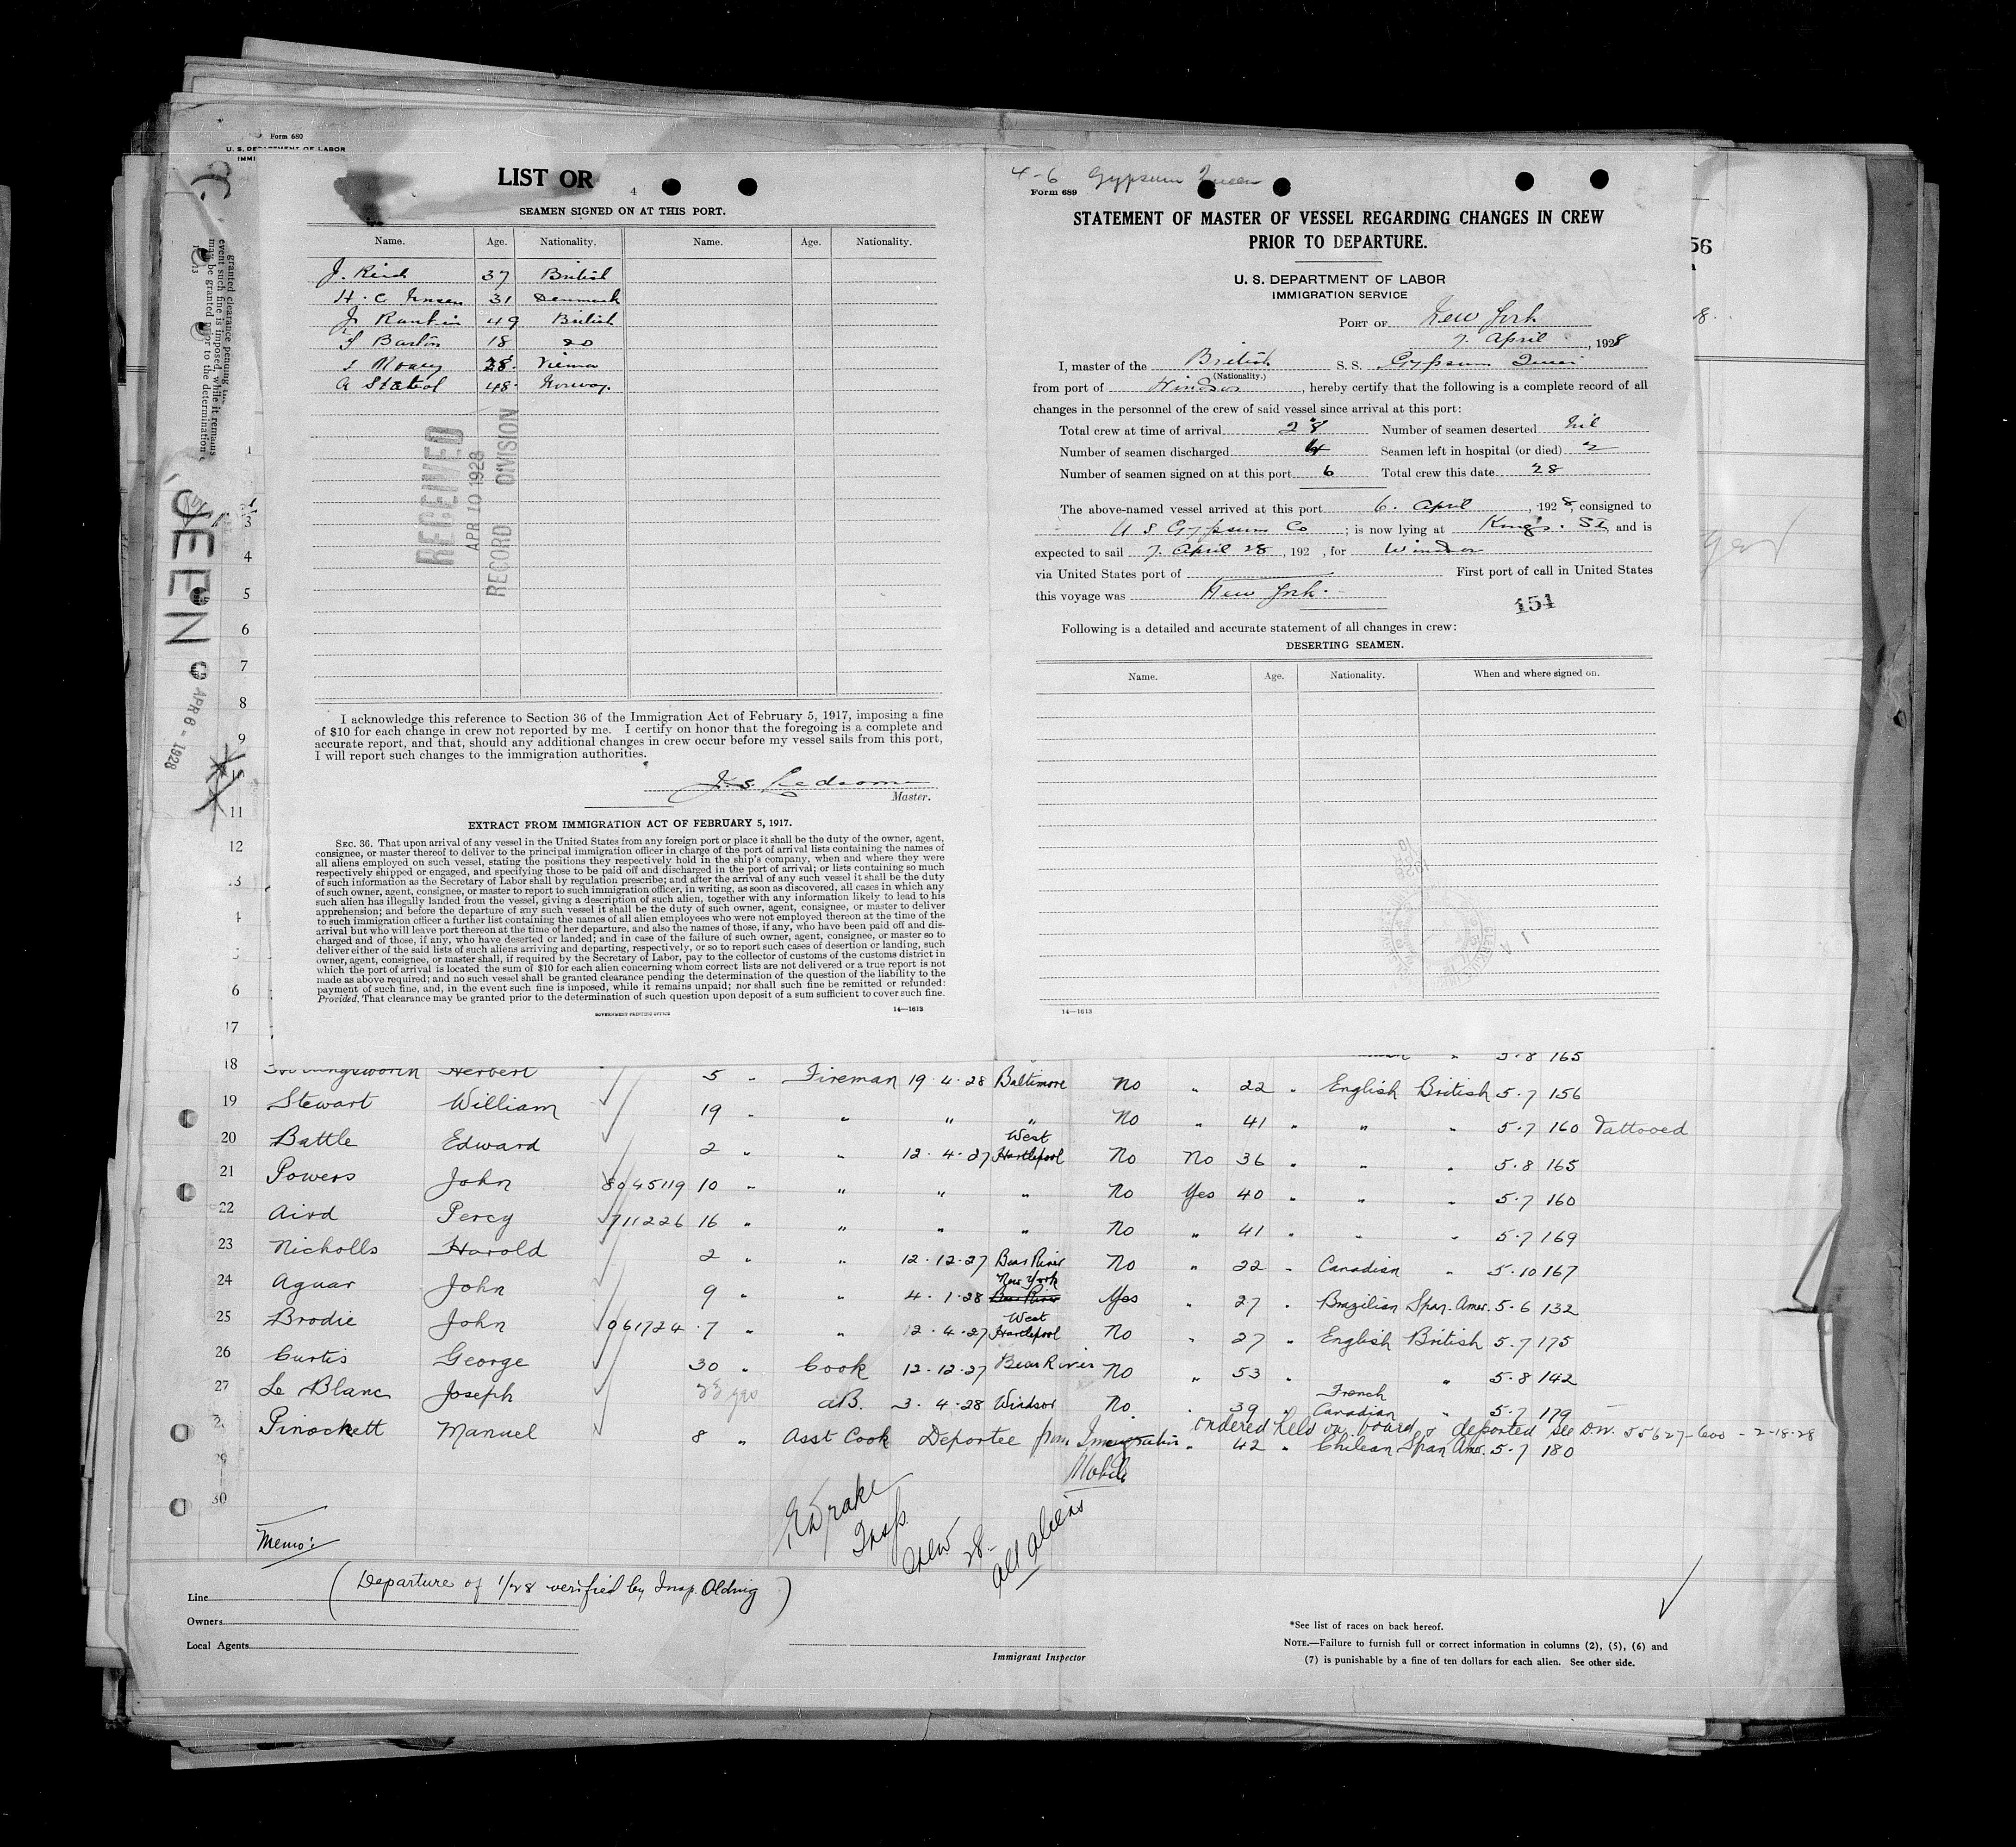 Form 680
U. S. DEPARTMENT OF LABOR
IMMI
LIST OR
4
SEAMEN SIGNED ON AT THIS PORT.
Name. Age. Nationality. Name. Age. Nationality.
J. Reid 37 British
H. C. 31 Denmark
J. Rankin 49 British
Barton 18 do
28
A 48 Norway.
RECEIVED
APR 10 1928
RECORD DIVISION
I acknowledge this reference to Section 36 of the Immigration Act of February 5, 1917, imposing a fine
of $10 for each change in crew not reported by me. I certify on honor that the foregoing is a complete and
accurate report, and that, should any additional changes in crew occur before my vessel sails from this port,
I will report such changes to the immigration authorities.
J. S. Ledsome
Master.
EXTRACT FROM IMMIGRATION ACT OF FEBRUARY 5, 1917.
SEC. 36. That upon arrival of any vessel in the United States from any foreign port or place it shall be the duty of the owner, agent,
consignee, or master thereof to deliver to the principal immigration officer in charge of the port of arrival lists containing the names of
all aliens employed on such vessel, stating the positions they respectively hold in the ship's company, when and where they were
respectively shipped or engaged, and specifying those to be paid off and discharged in the port of arrival; or lists containing so much
of such information as the Secretary of Labor shall by regulation prescribe; and after the arrival of any such vessel it shall be the duty
of such owner, agent, consignee, or master to report to such immigration officer, in writing, as soon as discovered, all cases in which any
such alien has illegally landed from the vessel, giving a description of such alien, together with any information likely to lead to his
apprehension; and before the departure of any such vessel it shall be the duty of such owner, agent, consignee, or master to deliver
to such immigration officer a further list containing the names of all alien employees who were not employed thereon at the time of the
arrival but who will leave port thereon at the time of her departure, and also the names of those, if any, who have been paid off and dis-
charged and of those, if any, who have deserted or landed; and in case of the failure of such owner, agent, consignee, or master so to
deliver either of the said lists of such aliens arriving and departing, respectively, or so to report such cases of desertion or landing, such
owner, agent, consignee, or master shall, if required by the Secretary of Labor, pay to the collector of customs of the customs district in
which the port of arrival is located the sum of $10 for each alien concerning whom correct lists are not delivered or a true report is not
made as above required; and no such vessel shall be granted clearance pending the determination of the question of the liability to the
payment of such fine, and, in the event such fine is imposed, while it remains unpaid; nor shall such fine be remitted or refunded:
Provided, That clearance may be granted prior to the determination of such question upon deposit of a sum sufficient to cover such fine.
GOVERNMENT PRINTING OFFICE 14—1613
4-6 Gypsum Queen
Form 689
STATEMENT OF MASTER OF VESSEL REGARDING CHANGES IN CREW
PRIOR TO DEPARTURE.
U. S. DEPARTMENT OF LABOR
IMMIGRATION SERVICE
PORT OF New York
7. April, 1928
I, master of the British S. S. Gypsum Queen
(Nationality.)
from port of Windsor, hereby certify that the following is a complete record of all
changes in the personnel of the crew of said vessel since arrival at this port:
Total crew at time of arrival 28 Number of seamen deserted Nil
Number of seamen discharged 4 Seamen left in hospital (or died) 2
Number of seamen signed on at this port 6 Total crew this date 28
The above-named vessel arrived at this port 6. April, 1928, consigned to
U S Gypsum Co; is now lying at Kings. St, and is
expected to sail 7. April 28, 192 , for Windsor
via United States port of First port of call in United States
this voyage was New York.
154
Following is a detailed and accurate statement of all changes in crew:
DESERTING SEAMEN.
Name. Age. Nationality. When and where signed on.
14—1613
56
granted clearance pending the
event such fine is imposed, while it remains
may be granted prior to the determination
UEEN
APR 6 - 1928
1
3
4
5
6
7
8
9
10
11
12
13
4
5
6
17
5.8 165
18 Herbert 5 " Fireman 19.4.28 Baltimore No " 22 " English British 5.7 156
19 Stewart William 19 " " " " No " 41 " " " 5.7 160 Tattooed
20 Battle Edward 2 " " 12.4.27 West Hartlepool No No 36 " " " 5.8 165
21 Powers John 8045119 10 " " " " No Yes 40 " " " 5.7 160
22 Aird Percy 711226 16 " " " " No " 41 " " " 5.7 169
23 Nicholls Harold 2 " " 12.12.27 Bear River No " 22 " Canadian " 5.10 167
24 Aguar John 9 " " 4.1.28 New York Bear River Yes " 27 " Brazilian Span. Amer. 5.6 132
25 Brodie John 961724 7 " " 12.4.27 West Hartlepool No " 27 " English British 5.7 175
26 Curtis George 30 " Cook 12.12.27 Bear River No " 53 " " 5.8 142
27 Le Blanc Joseph 23 yrs AB. 3.4.28 Windsor No. " 39 " French Canadian " 5.7 179
ordered held on board & deported see D.W. 55627-600 - 2-18-28
28 Pinockett Manuel 8 " Asst Cook Deportee from Immigration " 42 " Chilean Span Amer. 5.7 180
Mobile
29
30
E Drake
Insp.
Crew 28-
all aliens
Memo:
(Departure of 1/28 verified by Insp. Oldring)
Line
Owners
Local Agents
Immigrant Inspector
*See list of races on back hereof.
NOTE.—Failure to furnish full or correct information in columns (2), (5), (6) and
(7) is punishable by a fine of ten dollars for each alien. See other side.